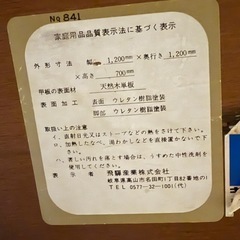 No 841
家庭用品品質表示法に基づく表示
外形寸法 幅 1,200mm×奥行き 1,200mm
×高さ 700mm
甲板の表面材 天然木単板
表面加工 表面 ウレタン樹脂塗装
脚部 ウレタン樹脂塗装
取扱い上の注意
イ．直射日光又はストーブなどの熱をさけて下さい。
ロ．加熱したなべ、湯わかしなどを直接置かないで下
さい。
ハ．著しい汚れを落とす場合は、うすめた中性洗剤を
使用して下さい。
表示者 飛騨産業株式会社
岐阜県高山市名田町1丁目82番地の1
TEL 0577-32-1001(代)